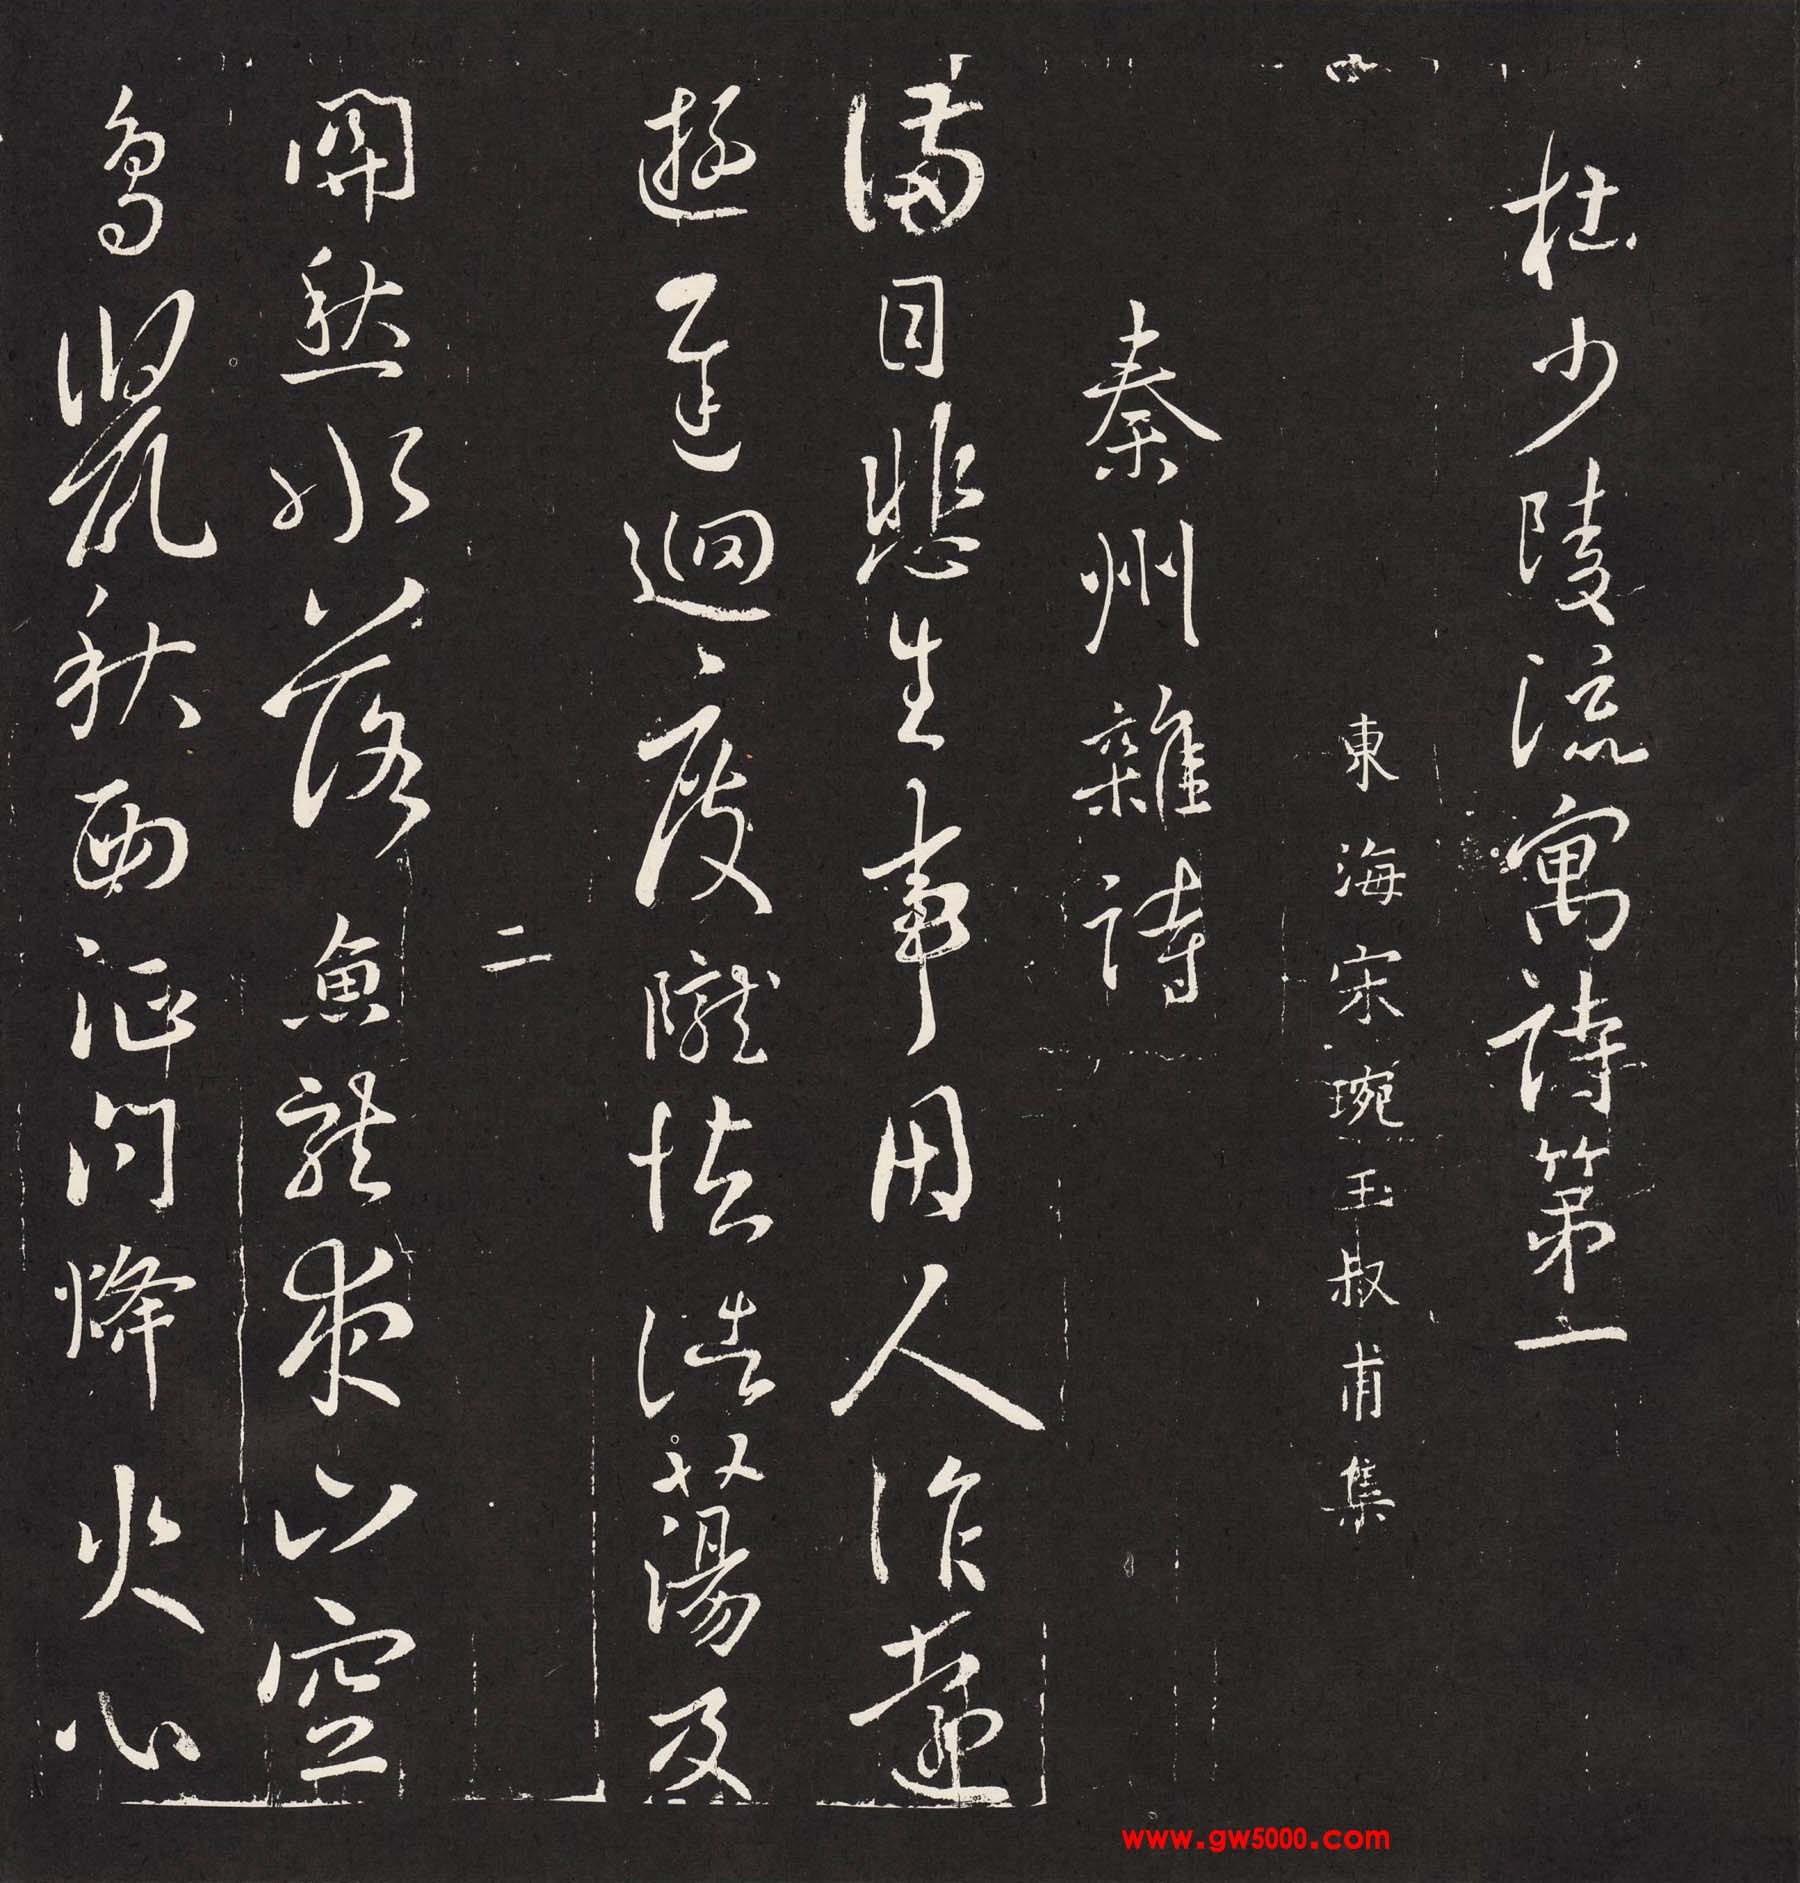 杜少陵流寓詩第一
東海宋琬玉叔甫集
秦州雜詩
滿目悲生事因人作遠
遊遲迴度隴怯浩蕩及
二
關愁水落魚龍夜山空
鳥鼠秋西征問烽火心
www.gw5000.com